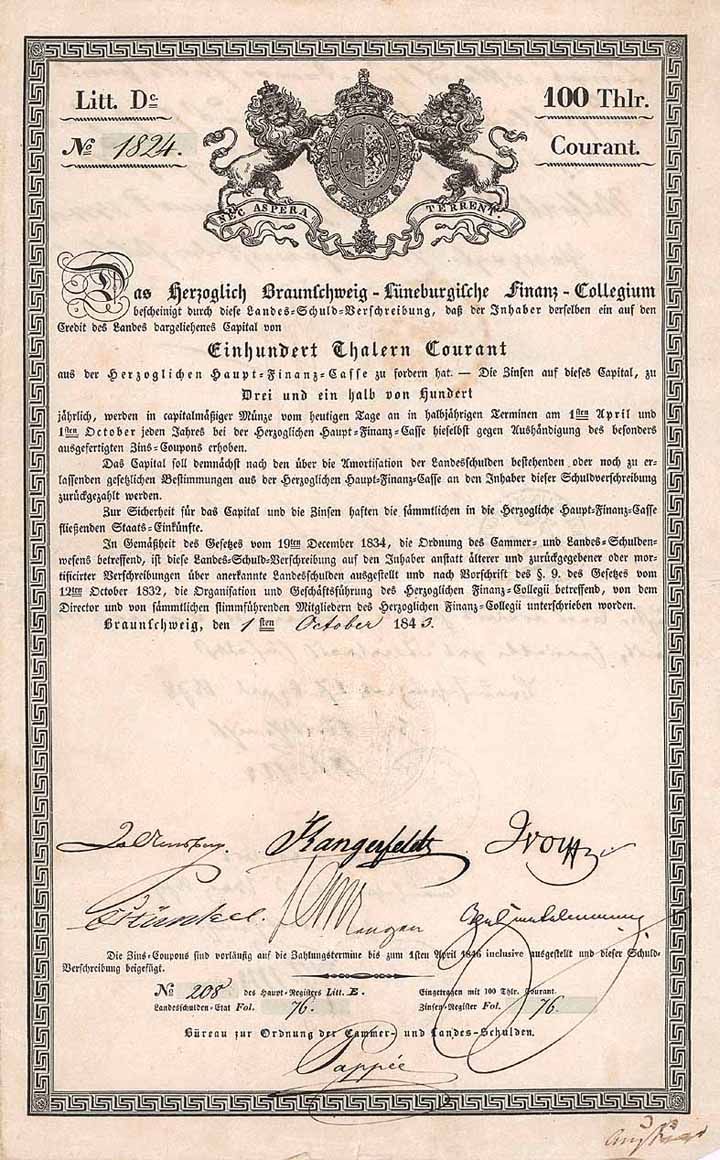 Litt. Dc.
100 Thlr.
No 1824.
Courant.
NEC ASPERA TERRENT
Das Herzoglich Braunschweig-Lüneburgische Finanz-Collegium
bescheinigt durch diese Landes-Schuld-Verschreibung, daß der Inhaber derselben ein auf den
Credit des Landes dargeliehenes Capital von
Einhundert Thalern Courant
aus der Herzoglichen Haupt-Finanz-Casse zu fordern hat. — Die Zinsen auf dieses Capital, zu
Drei und ein halb von Hundert
jährlich, werden in capitalmäßiger Münze vom heutigen Tage an in halbjährigen Terminen am 1sten April und
1sten October jeden Jahres bei der Herzoglichen Haupt-Finanz-Casse hieselbst gegen Aushändigung des besonders
ausgefertigten Zins-Coupons erhoben.
Das Capital soll demnächst nach den über die Amortisation der Landesschulden bestehenden oder noch zu er-
lassenden gesetzlichen Bestimmungen aus der Herzoglichen Haupt-Finanz-Casse an den Inhaber dieser Schuldverschreibung
zurückgezahlt werden.
Zur Sicherheit für das Capital und die Zinsen haften die sämmtlichen in die Herzogliche Haupt-Finanz-Casse
fließenden Staats-Einkünfte.
In Gemäßheit des Gesetzes vom 19ten December 1834, die Ordnung des Cammer- und Landes-Schulden-
wesens betreffend, ist diese Landes-Schuld-Verschreibung auf den Inhaber anstatt älterer und zurückgegebener oder mor-
tificirter Verschreibungen über anerkannte Landesschulden ausgestellt und nach Vorschrift des §. 9. des Gesetzes vom
12ten October 1832, die Organisation und Geschäftsführung des Herzoglichen Finanz-Collegii betreffend, von dem
Director und von sämmtlichen stimmführenden Mitgliedern des Herzoglichen Finanz-Collegii unterschrieben worden.
Braunschweig, den 1sten October 1843.
Langerfeldt
Die Zins-Coupons sind vorläufig auf die Zahlungstermine bis zum 1sten April 1846 inclusive ausgestellt und dieser Schuld-
Verschreibung beigefügt.
No 208 des Haupt-Registers Litt. E.
Eingetragen mit 100 Thlr. Courant.
Landesschulden-Etat Fol. 76.
Zinsen-Register Fol. 76.
Büreau zur Ordnung der Cammer- und Landes-Schulden.
Pappée